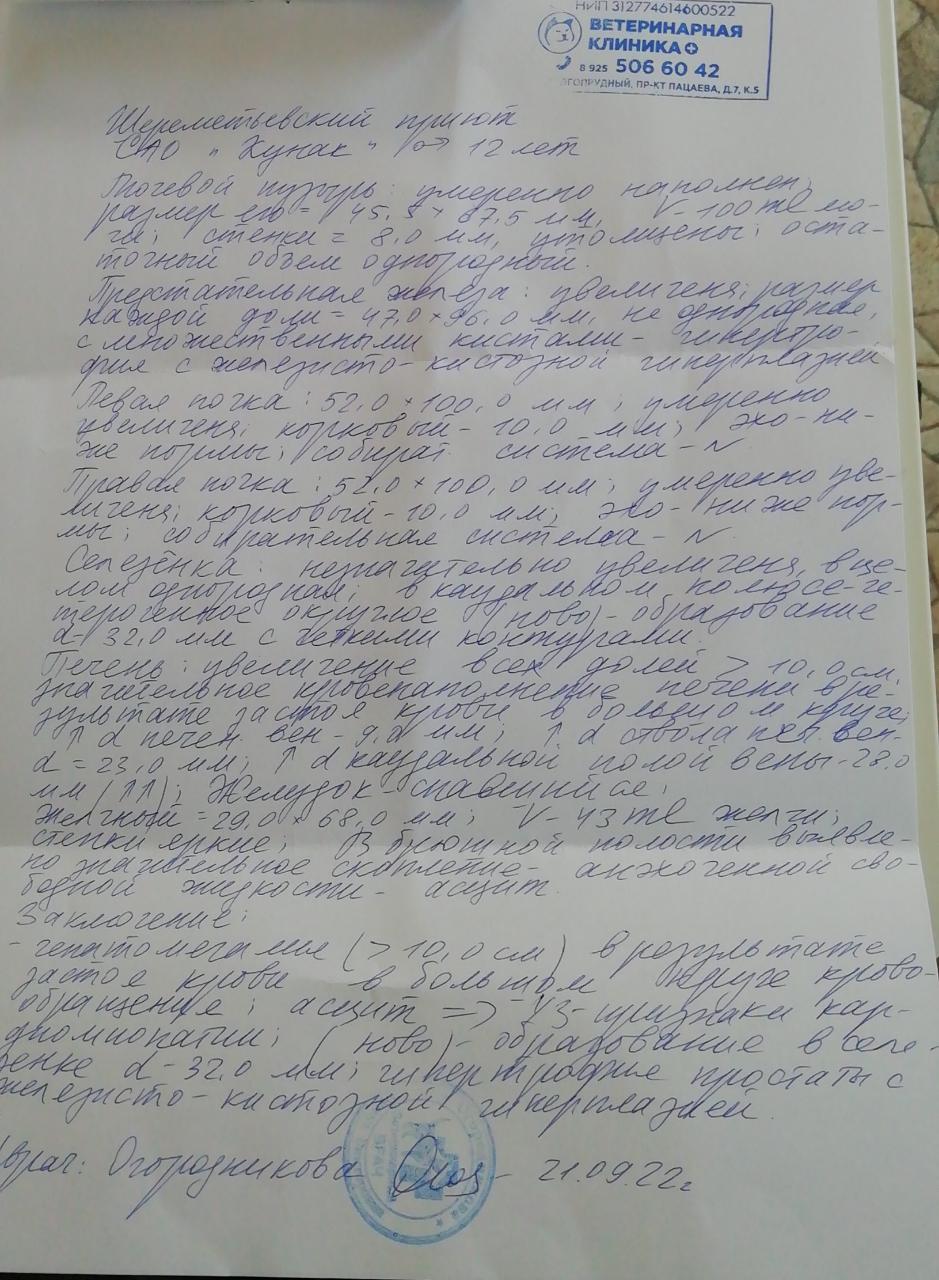 НИП 312774614600522
ВЕТЕРИНАРНАЯ
КЛИНИКА
8 925 506 60 42
ОЛГОПРУДНЫЙ, ПР-КТ ПАЦАЕВА, Д.7, К.5
Шереметьевский приют
САО "Хунак" ♂ 12 лет
Мочевой пузырь: умеренно наполнен,
размер его = 45,5 × 67,5 мм, V-100 ml мо-
чи; стенки = 8,0 мм, утолщены; оста-
точный объем однородный.
Предстательная железа: увеличена; размер
каждой доли = 47,0 × 36,0 мм, не однородная,
с множественными кистами - гипертро-
фия с железисто-кистозной гиперплазией
Левая почка: 52,0 × 100,0 мм; умеренно
увеличена; корковый - 10,0 мм; эхо-ни-
же нормы; собират. система - N
Правая почка: 52,0 × 100,0 мм; умеренно уве-
личена; корковый - 10,0 мм; эхо-ниже нор-
мы; собирательная система - N
Селезёнка: незначительно увеличена, в це-
лом однородная; в каудальном полюсе - ге-
терогенное округлое (ново)-образование
d-32,0 мм с четкими контурами.
Печень: увеличение всех долей > 10,0 см,
значительное кровенаполнение печени в ре-
зультате застоя крови в большом круге;
↑ d печен. вен - 9,0 мм; ↑ d ствола печ. вен-
d = 23,0 мм; ↑ d каудальной полой вены - 28,0
мм (↑↑); Желудок - спавшийся;
Желчный = 29,0 × 68,0 мм; V- 43 ml желчи;
стенки яркие; В брюшной полости выявле-
но значительное скопление - анэхогенной сво-
бодной жидкости - асцит.
Заключение:
- гепатомегалия (> 10,0 см) в результате
застоя крови в большом круге крово-
обращения; асцит => УЗ-признаки кар-
диомиопатии; (ново)-образование в селе-
зенке d-32,0 мм; гипертрофия простаты с
железисто-кистозной гиперплазией.
Врач: Огородникова 21.09.22г